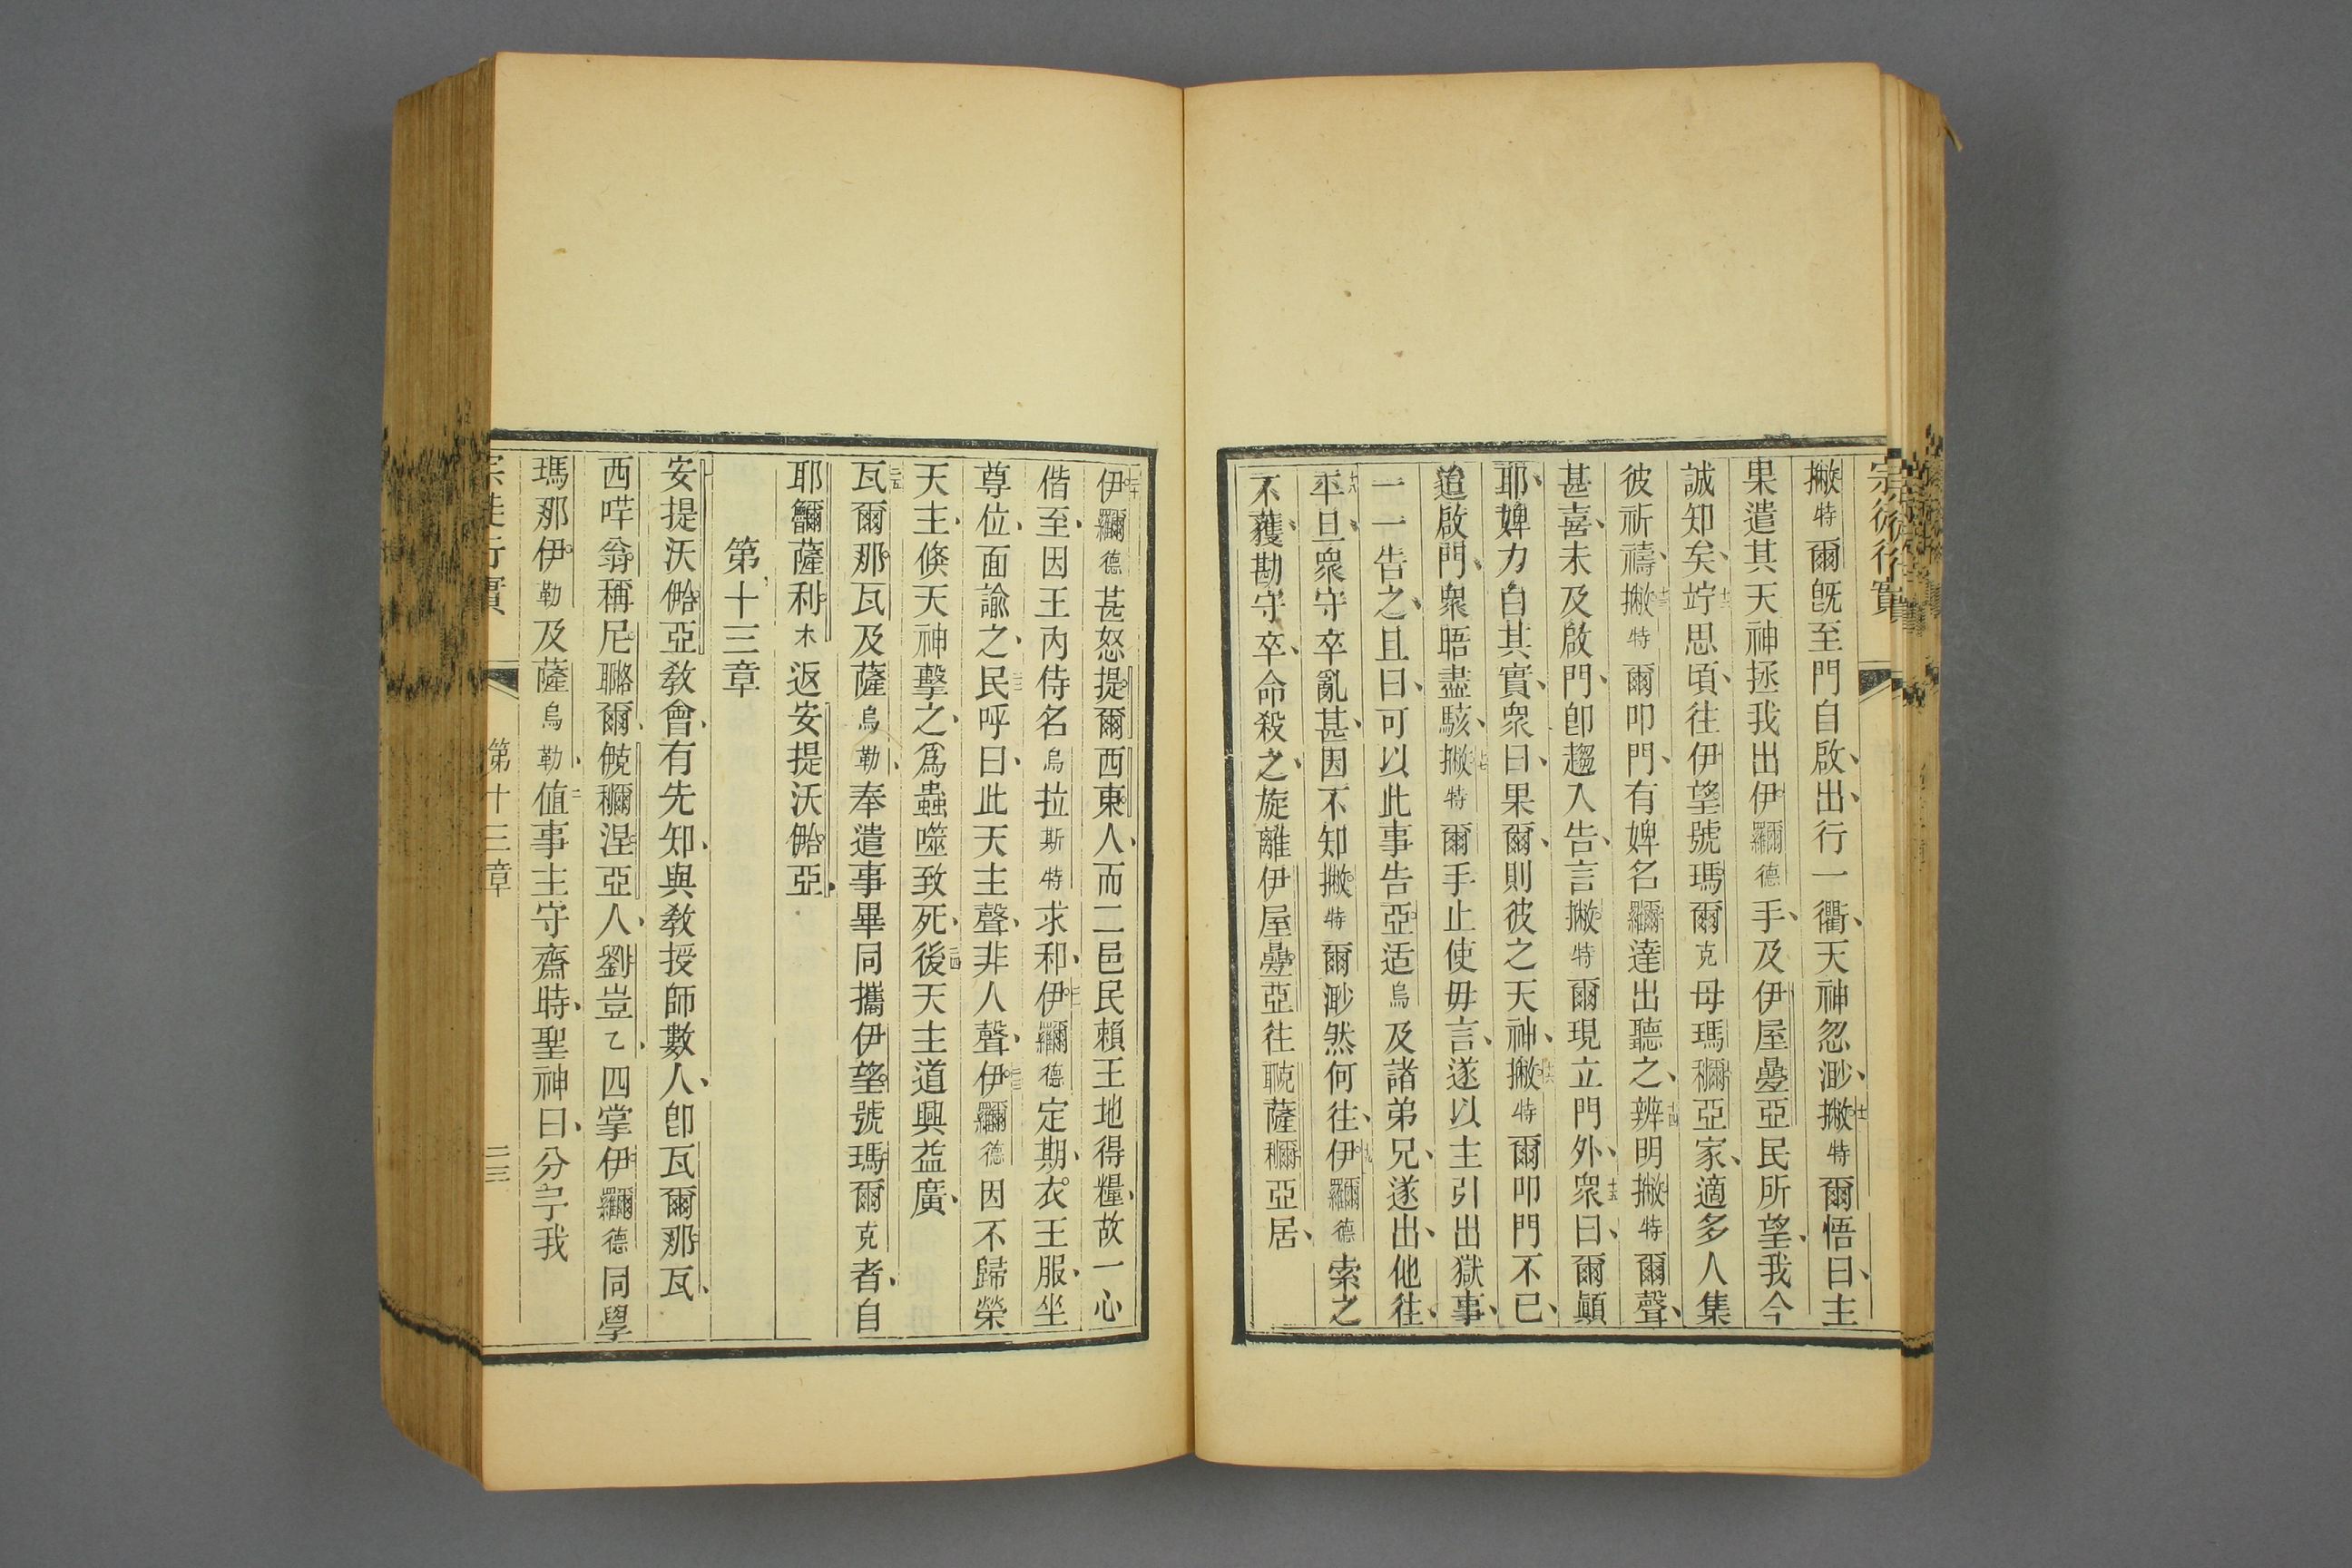 宗徒行實
撇特爾旣至門自啟、出、行一衢、天神忽渺、十一撇特爾悟曰、主
果遣其天神拯我出伊德手、及伊屋疊亞民所望、我今
誠知矣、十二竚思頃、往伊望號瑪爾克母瑪亞家、適多人集
彼祈禱、十三撇特爾叩門、有婢名達出聽之、十四辨明撇特爾聲、
甚喜、未及啟門、卽趨入告、言撇特爾現立門外、十五衆曰、爾顚
耶、婢力白其實、衆曰、果爾、則彼之天神、十六撇特爾叩門不已、
追啟門、衆晤盡駭、十七撇特爾手止使毋言、遂以主引出獄事、
一一告之、且曰、可以此事告亞适烏及諸弟兄、遂出、他往、
十八平旦、衆守卒亂甚、因不知撇特爾渺然何往、十九伊德索之
不獲、勘守卒、命殺之、旋離伊屋疊亞往薩亞居、
二十伊德甚怒提爾西東人、而二邑民賴王地得糧、故一心
偕至、因王內侍名烏拉斯特求和、二一伊德定期、衣王服、坐
尊位、面諭之、二二民呼曰、此天主聲、非人聲、二三伊德因不歸榮
天主、倏天神擊之、爲蟲噬致死、二四後天主道興益廣、
二五瓦爾那瓦及薩烏勒、奉遣事畢、同攜伊望號瑪爾克者、自
耶薩利木返安提沃亞、
第十三章
安提沃亞敎會、有先知、與敎授師數人、卽瓦爾那瓦、
西翁稱尼爾、涅亞人、劉豈乙、四掌伊德同學
瑪那伊勒及薩烏勒、二值事主守齋時、聖神曰、分予我
宗徒行實 第十三章 二三